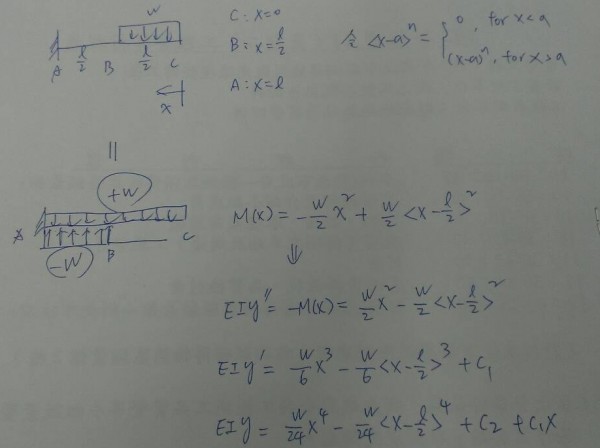 W
A l/2 B l/2 C
x
C: x=0
B: x=l/2
A: x=l
令 <x-a>ⁿ = { 0, for x<a
(x-a)ⁿ, for x>a
||
+W
A B C
-W
M(x) = -W/2 x² + W/2 <x-l/2>²
⇓
EIy'' = -M(x) = W/2 x² - W/2 <x-l/2>²
EIy' = W/6 x³ - W/6 <x-l/2>³ + C₁
EIy = W/24 x⁴ - W/24 <x-l/2>⁴ + C₂ + C₁x